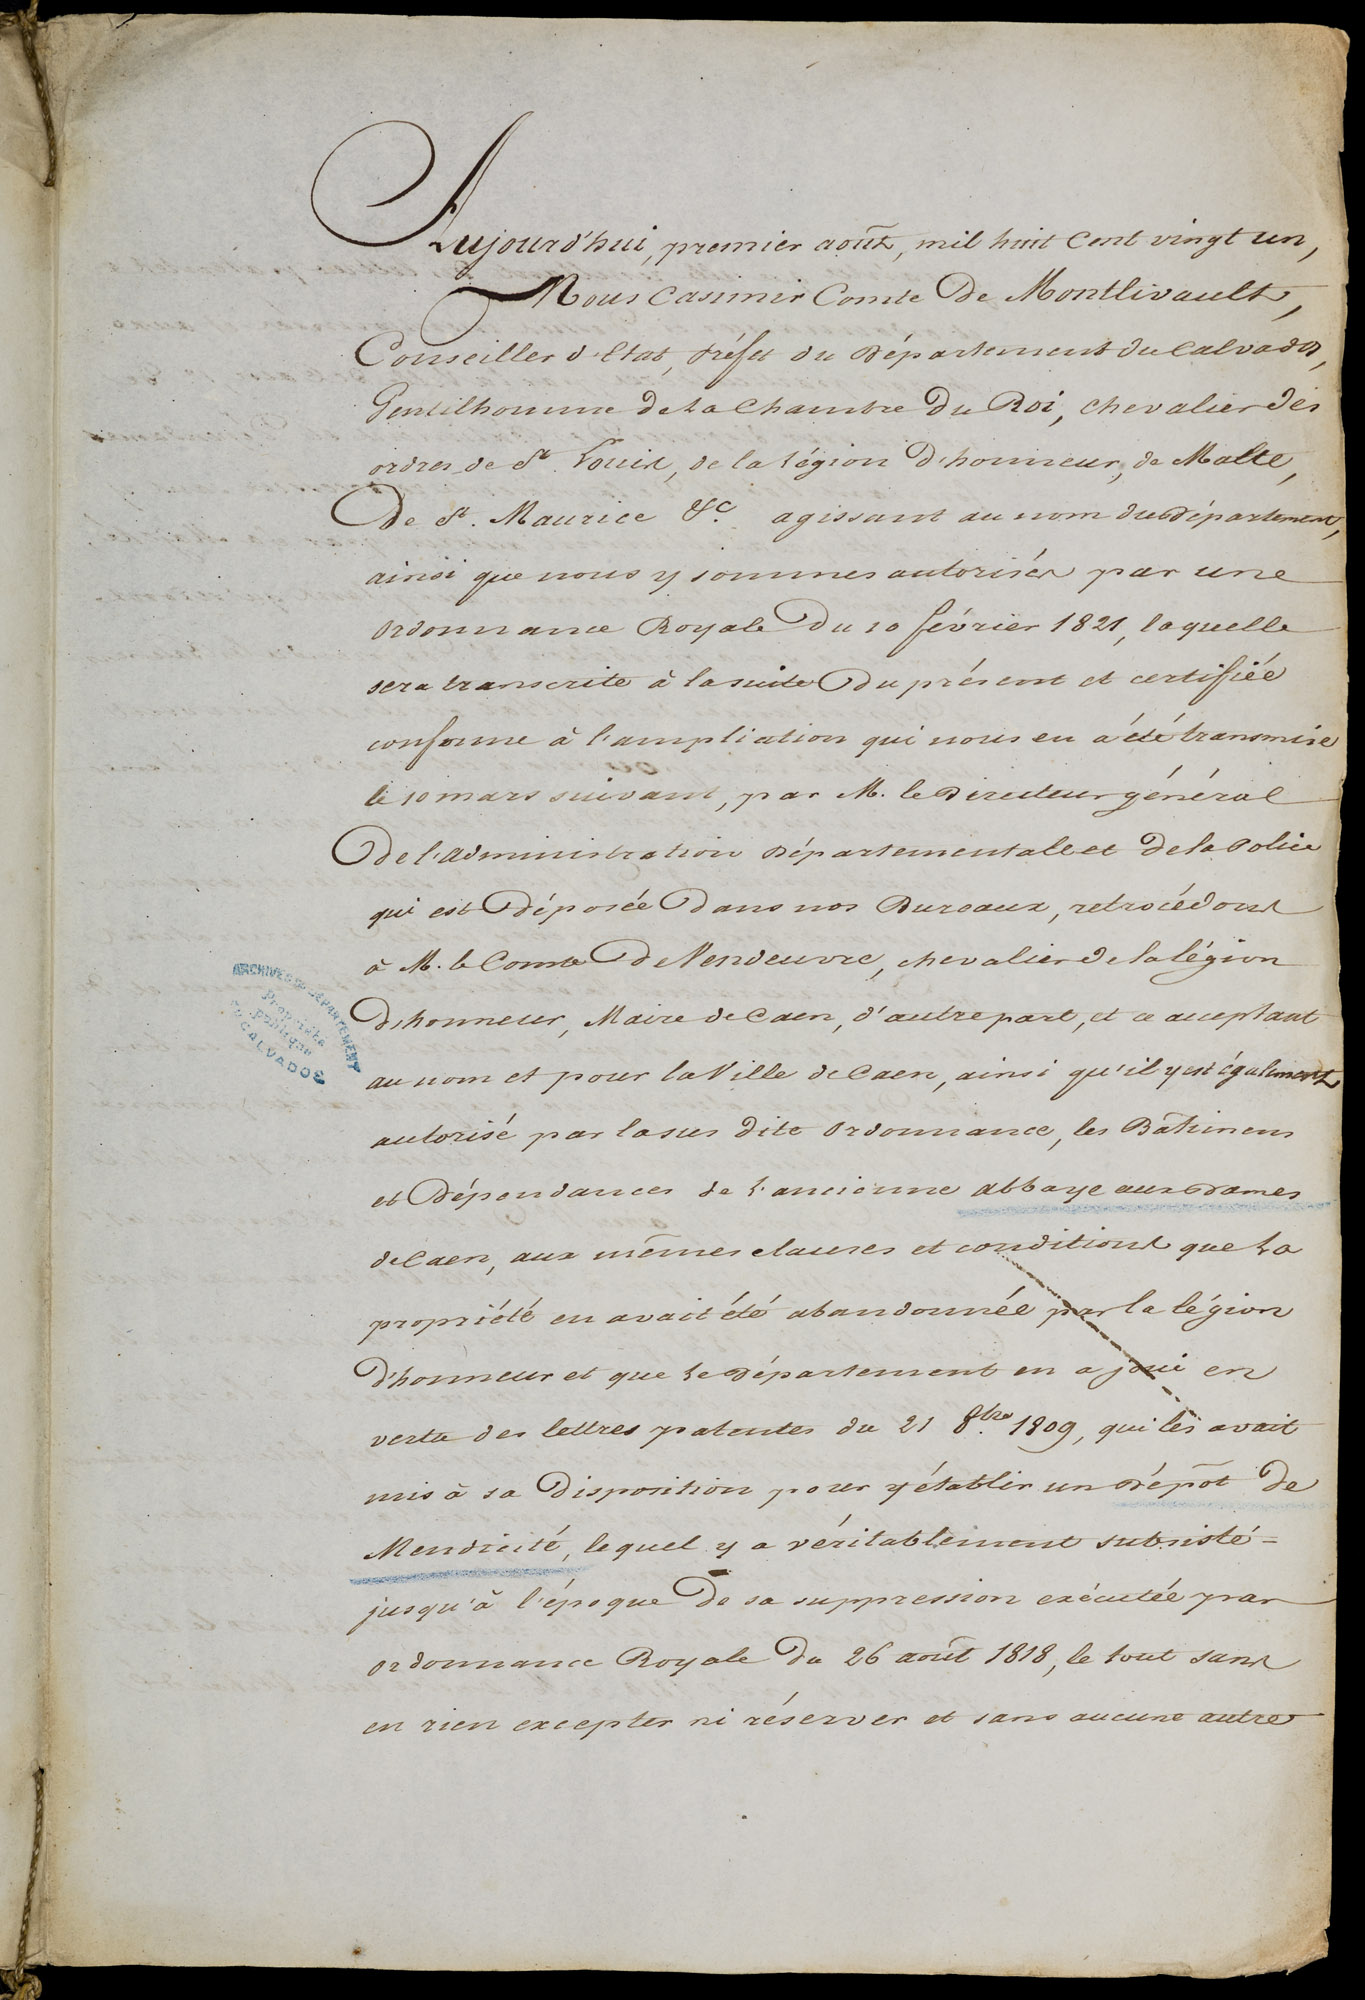 Aujourd'hui, premier août, mil huit cent vingt un,
Nous Casimir Comte de Montlivault,
Conseiller d'Etat, Préfet du Département du Calvados,
Gentilhomme de la Chambre du Roi, chevalier des
ordres de St. Louis, de la Légion d'honneur, de Malte,
de St. Maurice &c. agissant au nom du Département,
ainsi que nous y sommes autorisés par une
ordonnance Royale du 10 février 1821, laquelle
sera transcrite à la suite du présent et certifiée
conforme à l'ampliation qui nous en a été transmise
le 10 mars suivant, par M. le Directeur général
de l'administration Départementale et de la Police
qui est déposée dans nos Bureaux, retrocédons
à M. le Comte de Vendeuvre, chevalier de la légion
d'honneur, Maire de Caen, d'autre part, et ce acceptant
au nom et pour la Ville de Caen, ainsi qu'il y est également
autorisé par la sus dite ordonnance, les Bâtimens
et Dépendances de l'ancienne abbaye aux Dames
de Caen, aux mêmes clauses et conditions que la
propriété en avait été abandonnée par la légion
d'honneur et que le Département en a joui en
vertu des lettres patentes du 21 8bre. 1809, qui les avait
mis à sa disposition pour y établir un Dépôt de
Mendicité, lequel y a véritablement subsisté =
jusqu'à l'époque de sa suppression exécutée par
ordonnance Royale du 26 août 1818, le tout sans
en rien excepter ni réserver et sans aucune autre
ARCHIVES DU DÉPARTEMENT
Propriété
publique
DU CALVADOS